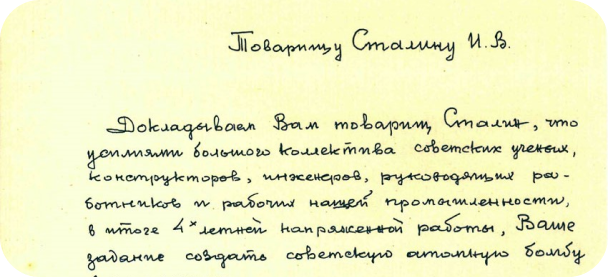 Товарищу Сталину И.В.
Докладываем Вам товарищ Сталин, что
усилиями большого коллектива советских ученых,
конструкторов, инженеров, руководящих ра-
ботников и рабочих нашей промышленности,
в итоге 4х летней напряженной работы, Ваше
задание создать советскую атомную бомбу